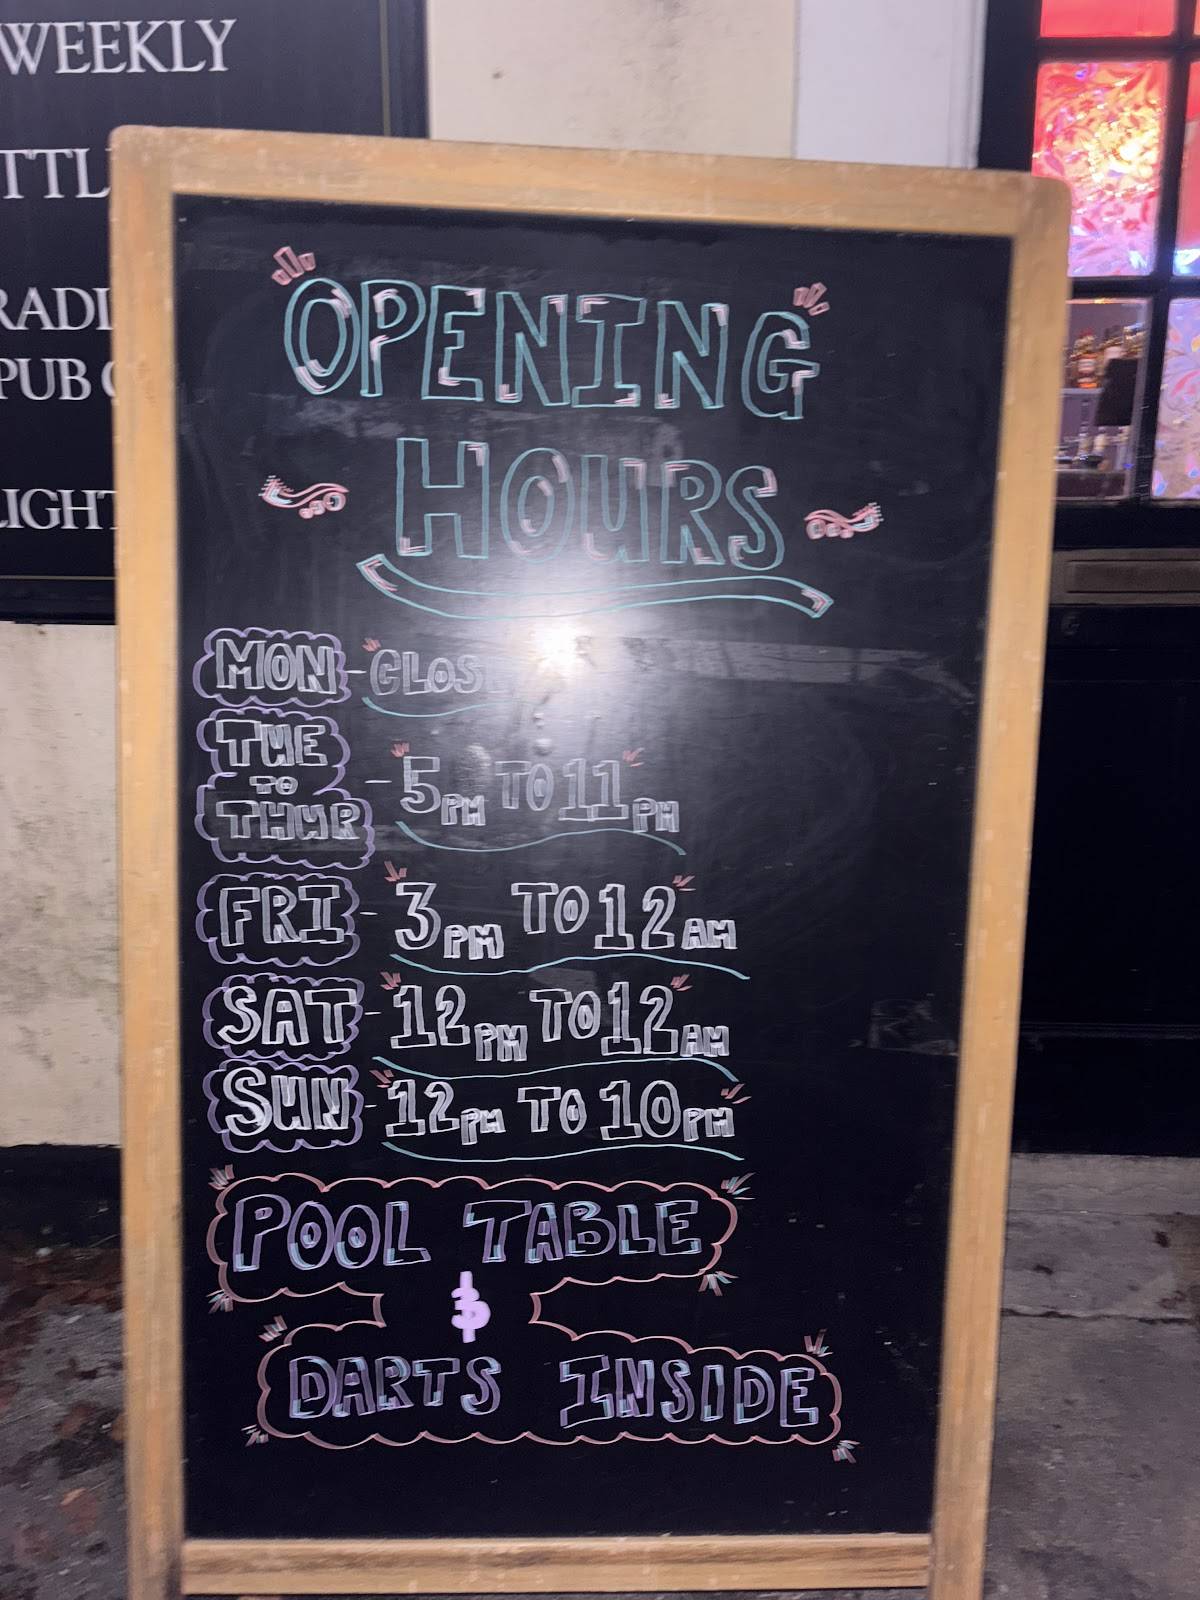 WEEKLY
OPENING
HOURS
MON - CLOS
TUE
TO
THUR
- 5PM TO 11PM
FRI - 3PM TO 12AM
SAT - 12PM TO 12AM
SUN - 12PM TO 10PM
POOL TABLE
&
DARTS INSIDE
TTL
RADI
PUB
IGHT